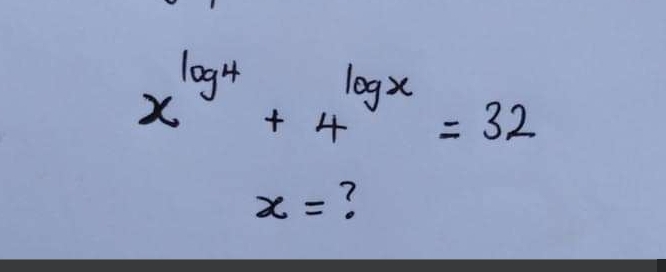 x^{log4} + 4^{logx} = 32
x = ?